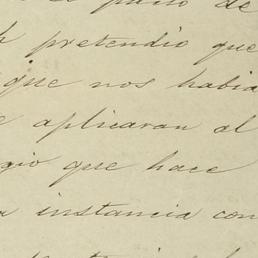 de
pretendio que
que nos habia
aplicaran al
que hace
instancia con